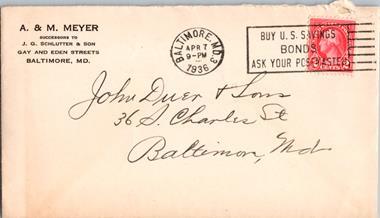 A. & M. MEYER
SUCCESSORS TO
J. G. SCHLUTTER & SON
GAY AND EDEN STREETS
BALTIMORE, MD.
BALTIMORE, MD. 3
APR 7
9-PM
1936
BUY U.S. SAVINGS
BONDS
ASK YOUR POSTMASTER
John Duer & Sons
36 S. Charles St
Baltimore, Md.